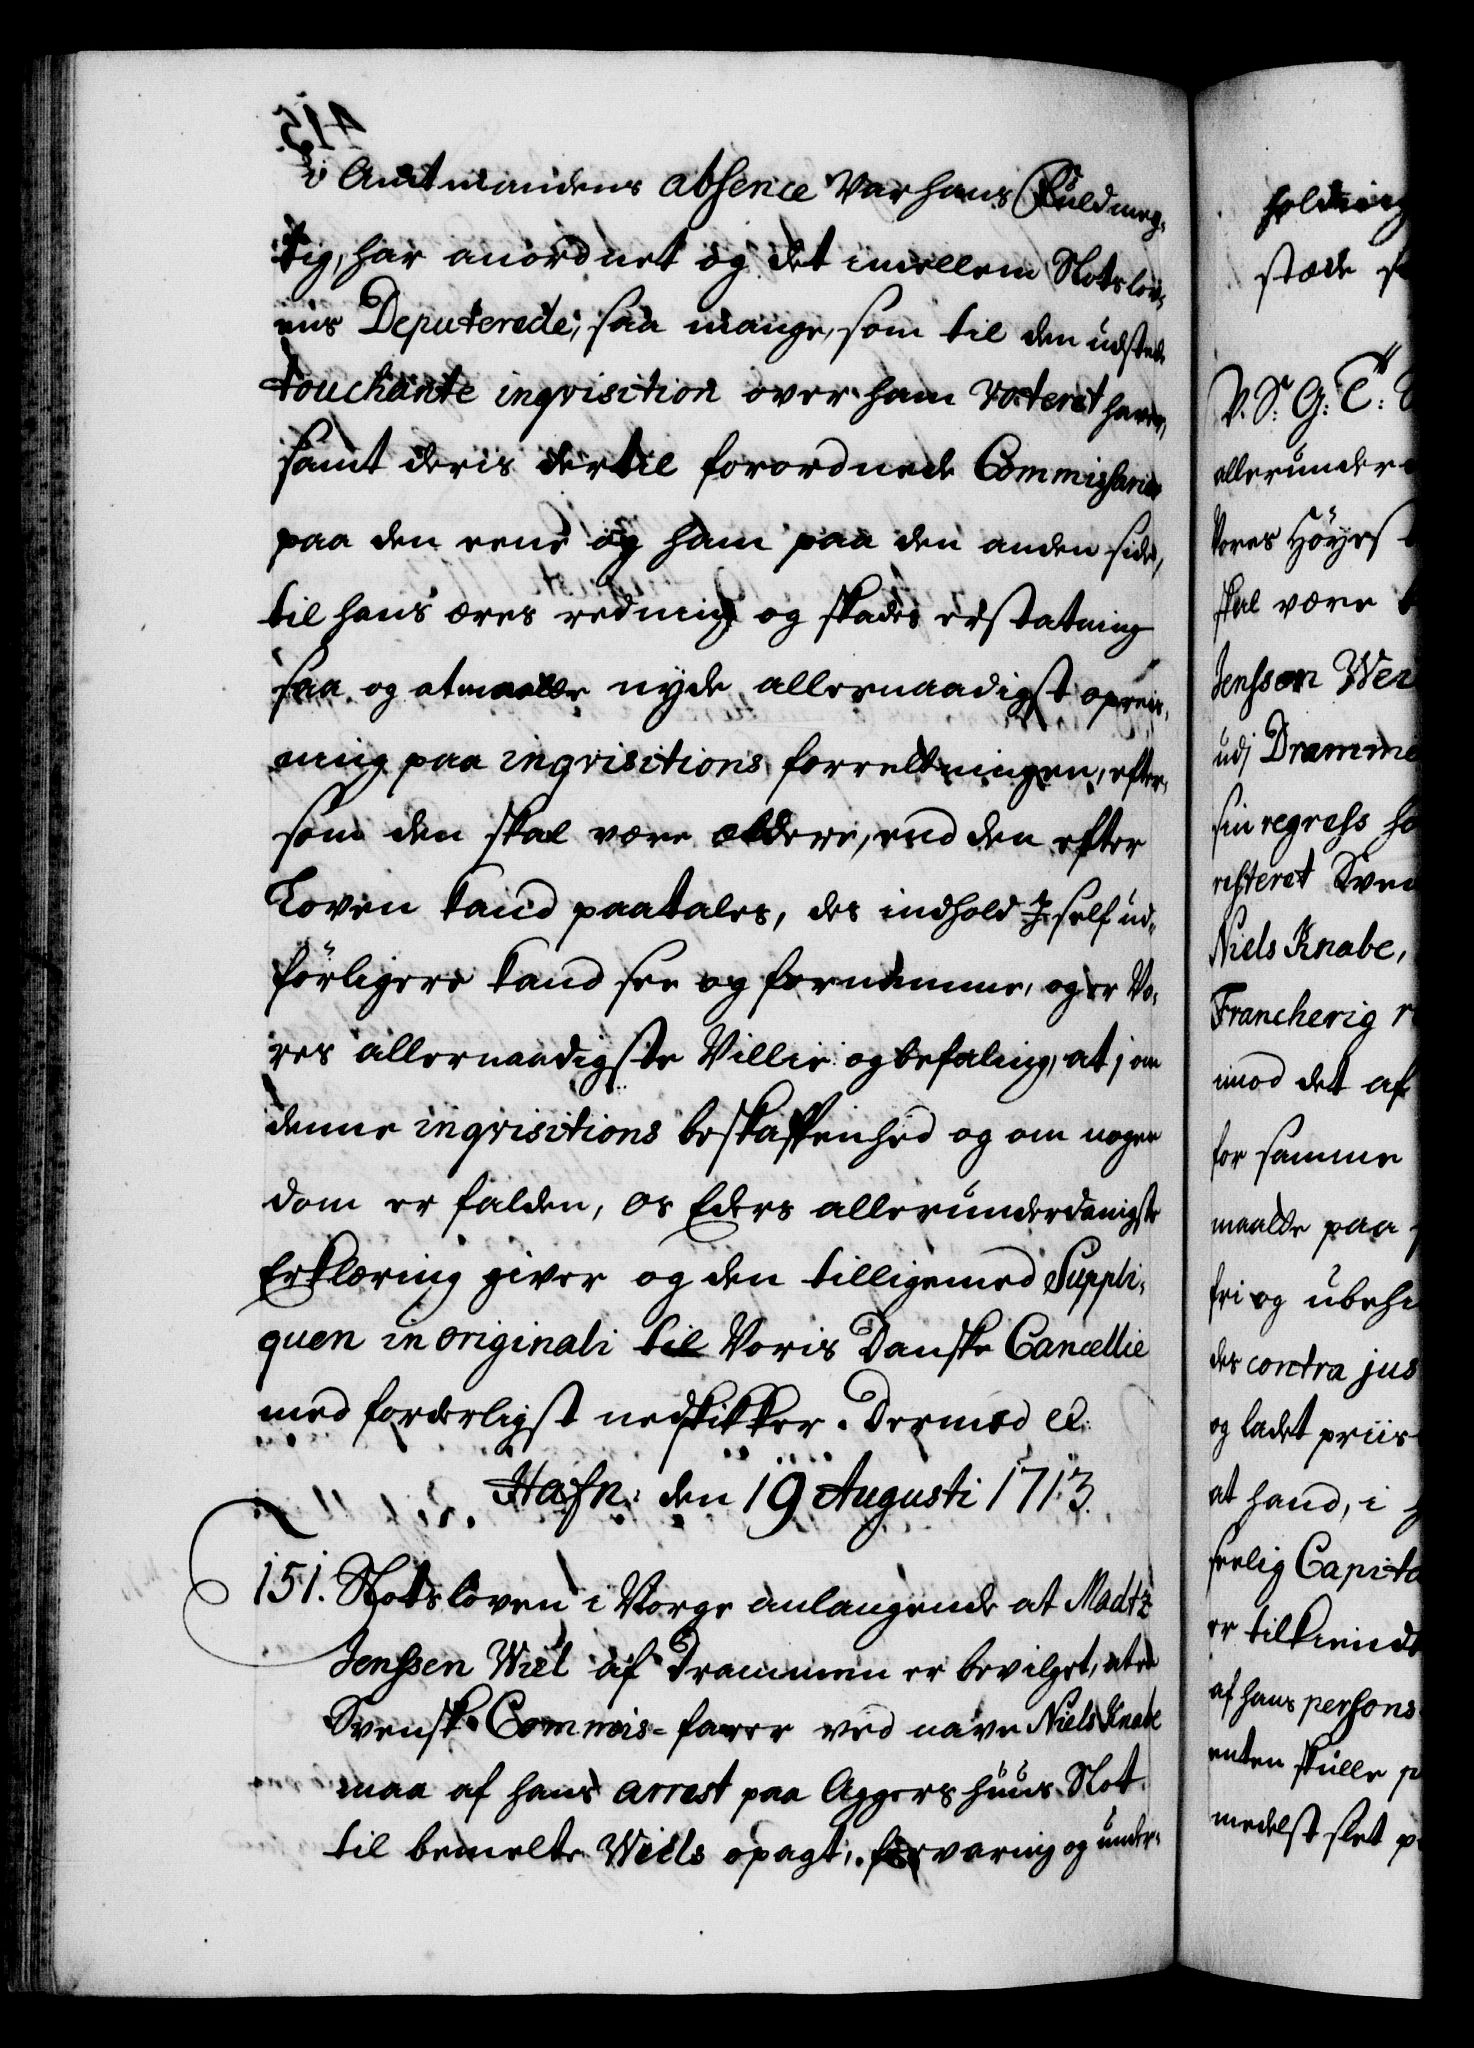 i Amtmandens absence var hans Fuldmeg-
tig, har anordnet og det imellem Slotslov-
ens Deputerede, saa mange, som til den udstede
touchante inqvisition over ham voteret haver,
samt deris dertil forordnede Commissarier
paa den eene og ham paa den anden side,
til hans æres redning og skades erstatning
saa og at maatte nyde allernaadigst opreis-
ning paa inqvisitions forretningen, efter-
som den skal være ældere, end den efter
Loven kand paatales, des indhold I self ud-
förligere kand see og fornemme, og er Vo-
res allernaadigste Villie og befaling, at j om
denne inqvisitions beskaffenhed og om nogen
dom er falden, os Eders allerunderdanigste
Erklæring giver og den tilligemed Suppli-
quen in originali til Voris Danske Cancellie
med forderligst nedskikker. Dermed etc.
Hafn: den 19 Augusti 1713.
151. Slotsloven i Norge anlangende at Madtz
Jenssen Wiel af Drammen er bevilget, at en
Svensk Commis-farer ved navn Niels Knabe
maa af hans arrest paa Aggershuus Slot
til bemelte Wiels opagt, forvaring og under-
holdning
stæde
V. S: G: T:
allerunder
Vores Höyes
skal være
Jensson Wer
udj Dramme
sin regress
resteret Sven
Niels Knabe,
Francherig
imod det af
for samme
maatte paa
fri og ubehi
des contra jus
og ladet priis
at hand, i
seelig Capita
er tilkiendt
af hans persons
enten skulle
medelst slet